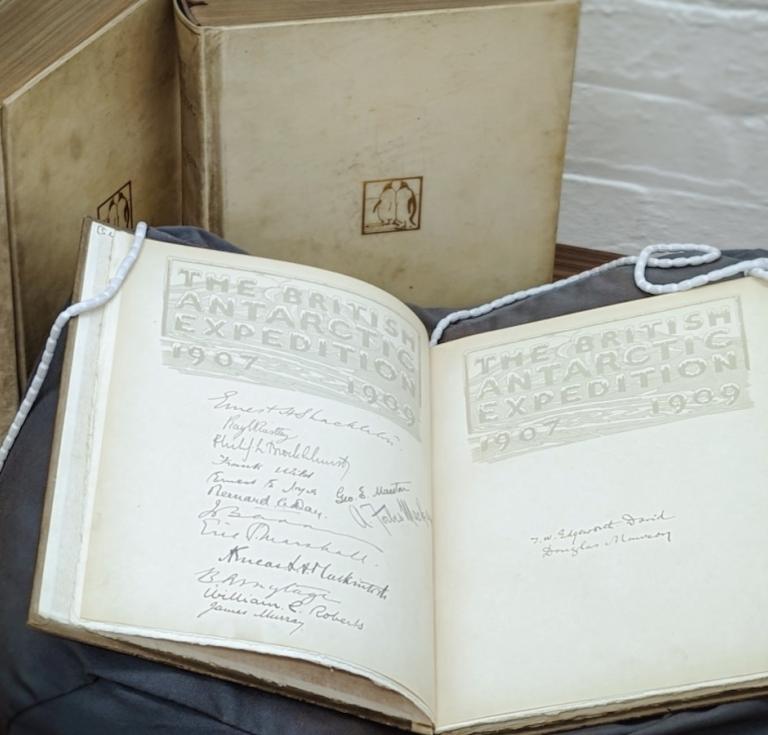 THE BRITISH
ANTARCTIC
EXPEDITION
1907 1909
Ernest H Shackleton.
Ray Priestley
Philip L Brocklehurst
Frank Wild
Ernest E Joyce Geo. E. Marston
Bernard C. Day. A Forbes Mackay
Eric Marshall.
Aeneas L A Mackintosh
B Armytage
William C. Roberts
James Murray
THE BRITISH
ANTARCTIC
EXPEDITION
1907 1909
T. W. Edgeworth David
Douglas Mawson